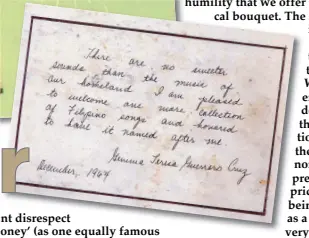 humility that we offer
cal bouquet. The
There are no sweeter
sounds than the music of
our homeland. I am pleased
to welcome one more collection
of Filipino songs and honored
to have it named after me.
Gemma Teresa Guerrero Cruz
December, 1964
r
nt disrespect
oney' (as one equally famous
t
W
e
d
th
tio
the
nor
pre
pric
bein
as a
very